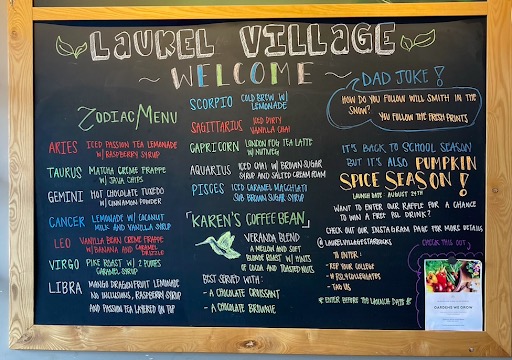 LAUREL VILLAGE
~ WELCOME ~
ZODIAC MENU
ARIES ICED PASSION TEA LEMONADE
W/ RASPBERRY SYRUP
TAURUS MATCHA CRÈME FRAPPE
W/ JAVA CHIPS
GEMINI HOT CHOCOLATE TUXEDO
W/ CINNAMON POWDER
CANCER LEMONADE W/ COCONUT
MILK AND VANILLA SYRUP
LEO VANILLA BEAN CRÈME FRAPPE
W/ BANANA AND CARAMEL
DRIZZLE
VIRGO PIKE ROAST W/ 2 PUMPS
CARAMEL SYRUP
LIBRA MANGO DRAGONFRUIT LEMONADE
NO INCLUSIONS, RASPBERRY SYRUP
AND PASSION TEA LAYERED ON TOP
SCORPIO COLD BREW W/
LEMONADE
SAGITTARIUS ICED DIRTY
VANILLA CHAI
CAPRICORN LONDON FOG TEA LATTE
W/ NUTMEG
AQUARIUS ICED CHAI W/ BROWN SUGAR
SYRUP AND SALTED CREAM FOAM
PISCES ICED CARAMEL MACCHIATO
SUB BROWN SUGAR SYRUP
"KAREN'S COFFEE BEAN"
VERANDA BLEND
A MELLOW AND SOFT
BLONDE ROAST W/ HINTS
OF COCOA AND TOASTED NUTS
BEST SERVED WITH:
- A CHOCOLATE CROISSANT
- A CHOCOLATE BROWNIE
DAD JOKE!
HOW DO YOU FOLLOW WILL SMITH IN THE
SNOW?
YOU FOLLOW THE FRESH PRINTS
IT'S BACK TO SCHOOL SEASON
BUT IT'S ALSO PUMPKIN
SPICE SEASON!
LAUNCH DATE AUGUST 24TH
WANT TO ENTER OUR RAFFLE FOR A CHANCE
TO WIN A FREE PSL DRINK?
CHECK OUT OUR INSTAGRAM PAGE FOR MORE DETAILS
@LAURELVILLAGESTARBUCKS
TO ENTER:
- REP YOUR COLLEGE
- TAG US
* ENTER BEFORE THE LAUNCH DATE *
CHECK THIS OUT
GARDENS WE GROW